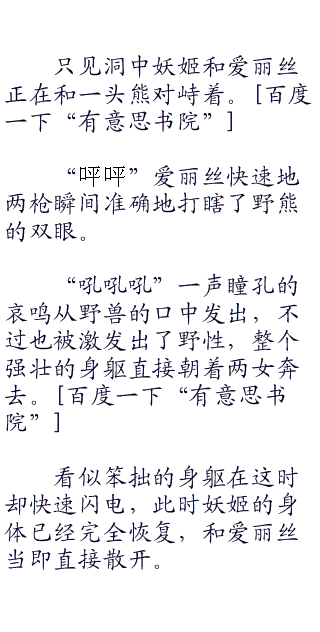 只见洞中妖姬和爱丽丝
正在和一头熊对峙着。[百度
一下“有意思书院”]
“呯呯”爱丽丝快速地
两枪瞬间准确地打瞎了野熊
的双眼。
“吼吼吼”一声瞳孔的
哀鸣从野兽的口中发出，不
过也被激发出了野性，整个
强壮的身躯直接朝着两女奔
去。[百度一下“有意思书
院”]
看似笨拙的身躯在这时
却快速闪电，此时妖姬的身
体已经完全恢复，和爱丽丝
当即直接散开。